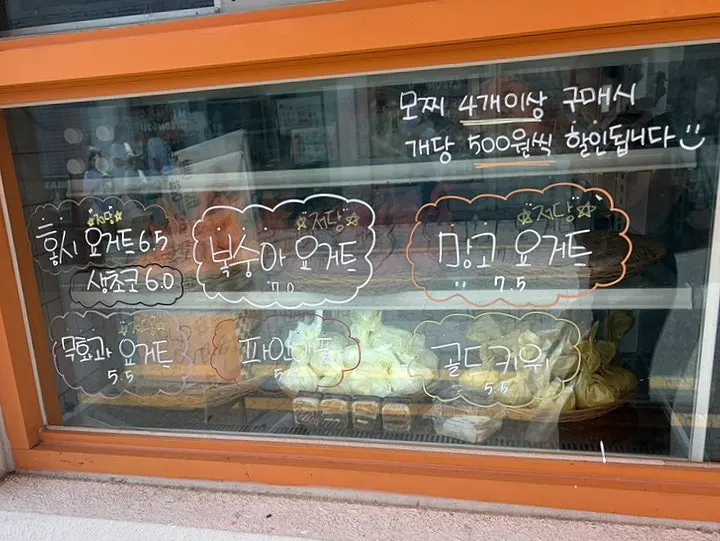 모찌 4개이상 구매시
개당 500원씩 할인됩니다
저당
홍시 요거트 6.5
생초콘 6.0
저당
복숭아 요거트
7.0
저당
망고 요거트
7.5
저당
무화과 요거트
5.5
파인애플
골드키위
5.5